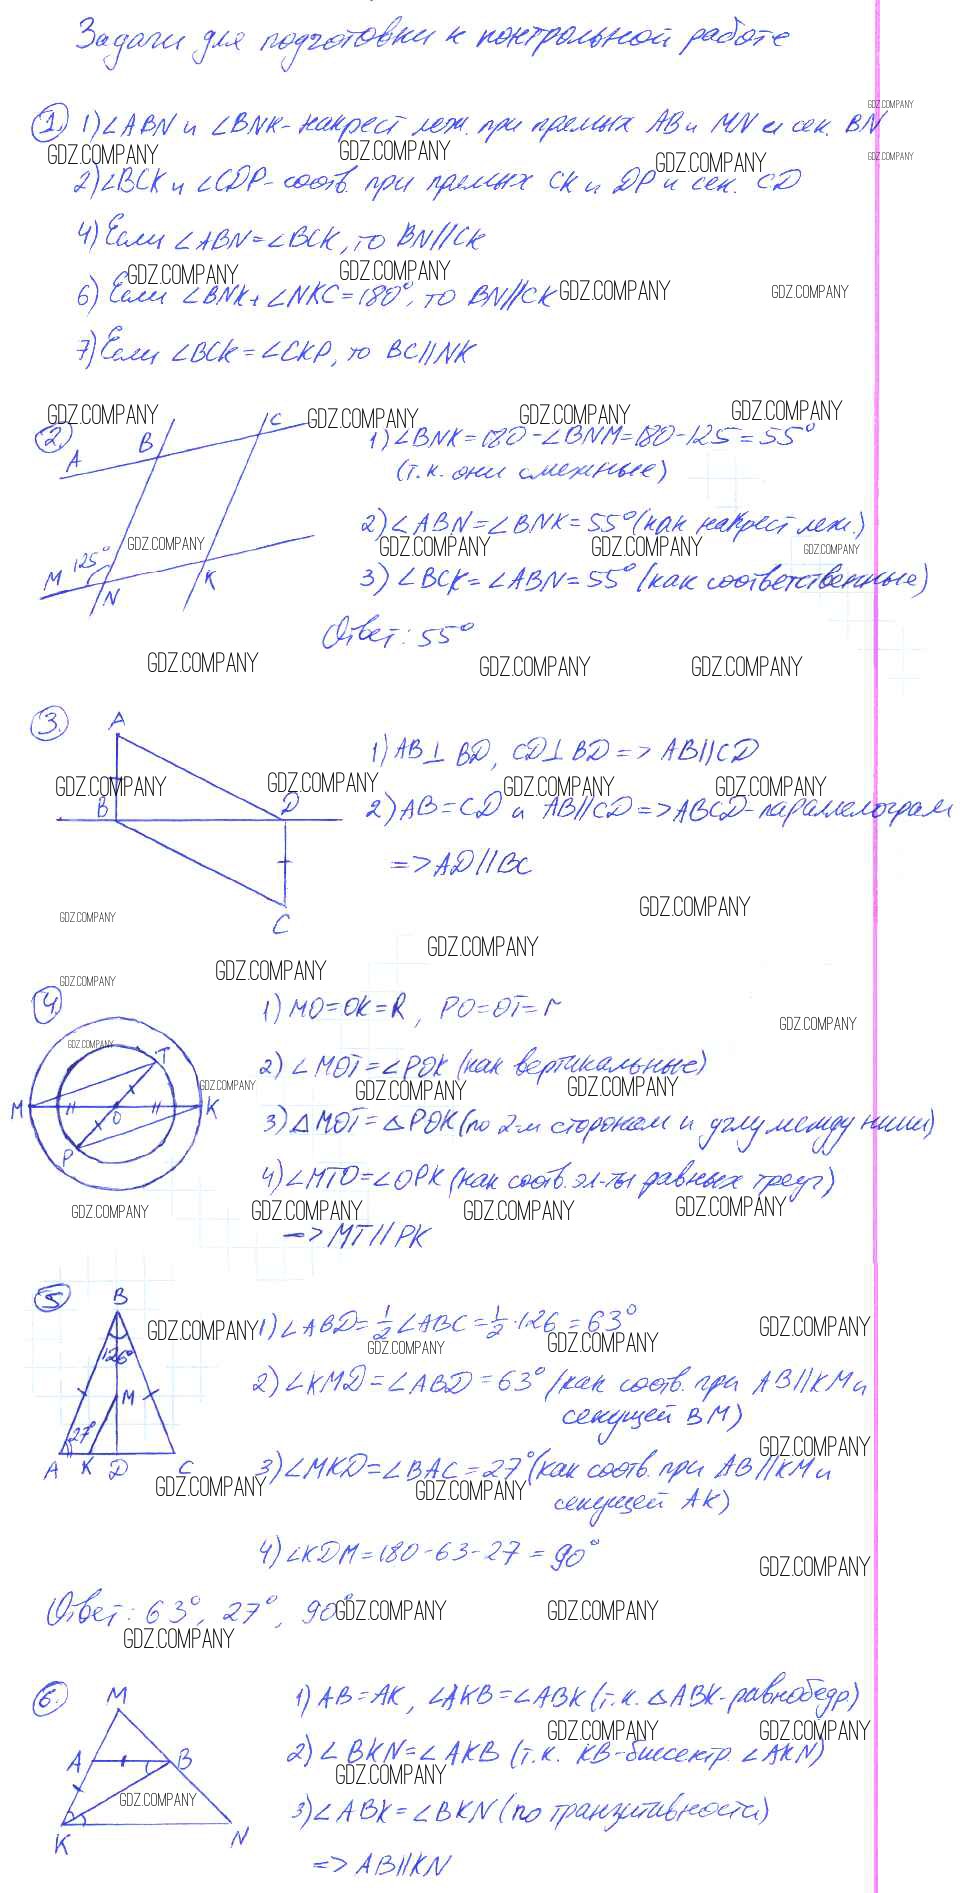 Задачи для подготовки к контрольной работе
1. 1) ∠ABN и ∠BNK - накрест леж. при прямых AB и MN и сек. BN
GDZ.COMPANY GDZ.COMPANY GDZ.COMPANY GDZ.COMPANY GDZ.COMPANY
2) ∠BCK и ∠CDP - соотв. при прямых CK и DP и сек. CD
4) Если ∠ABN = ∠BCK, то BN//CK
GDZ.COMPANY GDZ.COMPANY GDZ.COMPANY GDZ.COMPANY
6) Если ∠BNK + ∠NKC = 180°, то BN//CK
7) Если ∠BCK = ∠CKP, то BC//NK
GDZ.COMPANY GDZ.COMPANY GDZ.COMPANY GDZ.COMPANY
2. A B C M N K 125°
1) ∠BNK = 180 - ∠BNM = 180 - 125 = 55°
(т.к. они смежные)
2) ∠ABN = ∠BNK = 55° (как накрест леж.)
GDZ.COMPANY GDZ.COMPANY GDZ.COMPANY GDZ.COMPANY
3) ∠BCK = ∠ABN = 55° (как соответственные)
Ответ: 55°
GDZ.COMPANY GDZ.COMPANY GDZ.COMPANY
3. A B D C
1) AB⊥BD, CD⊥BD => AB//CD
GDZ.COMPANY GDZ.COMPANY GDZ.COMPANY GDZ.COMPANY
2) AB = CD и AB//CD => ABCD - параллелограм
=> AD//BC
GDZ.COMPANY GDZ.COMPANY GDZ.COMPANY GDZ.COMPANY GDZ.COMPANY
4. M T O K P
1) MO = OK = R, PO = OT = r
GDZ.COMPANY GDZ.COMPANY
2) ∠MOT = ∠POK (как вертикальные)
GDZ.COMPANY GDZ.COMPANY GDZ.COMPANY
3) △MOT = △POK (по 2-м сторонам и углу между ними)
4) ∠MTO = ∠OPK (как соотв. эл-ты равных треуг)
GDZ.COMPANY GDZ.COMPANY GDZ.COMPANY GDZ.COMPANY
=> MT//PK
5. B 126° M 27° A K D C
1) ∠ABD = 1/2 ∠ABC = 1/2 · 126 = 63°
GDZ.COMPANY GDZ.COMPANY GDZ.COMPANY GDZ.COMPANY
2) ∠KMD = ∠ABD = 63° (как соотв. при AB//KM и
секущей BM)
3) ∠MKD = ∠BAC = 27° (как соотв. при AB//KM и
GDZ.COMPANY GDZ.COMPANY GDZ.COMPANY
секущей AK)
4) ∠KDM = 180 - 63 - 27 = 90°
GDZ.COMPANY
Ответ: 63°, 27°, 90°
GDZ.COMPANY GDZ.COMPANY GDZ.COMPANY
6. M A B K N
1) AB = AK, ∠AKB = ∠ABK (т.к. △ABK - равнобедр)
GDZ.COMPANY GDZ.COMPANY
2) ∠BKN = ∠AKB (т.к. KB - биссектр. ∠AKN)
GDZ.COMPANY GDZ.COMPANY
3) ∠ABK = ∠BKN (по транзитивности)
=> AB//KN